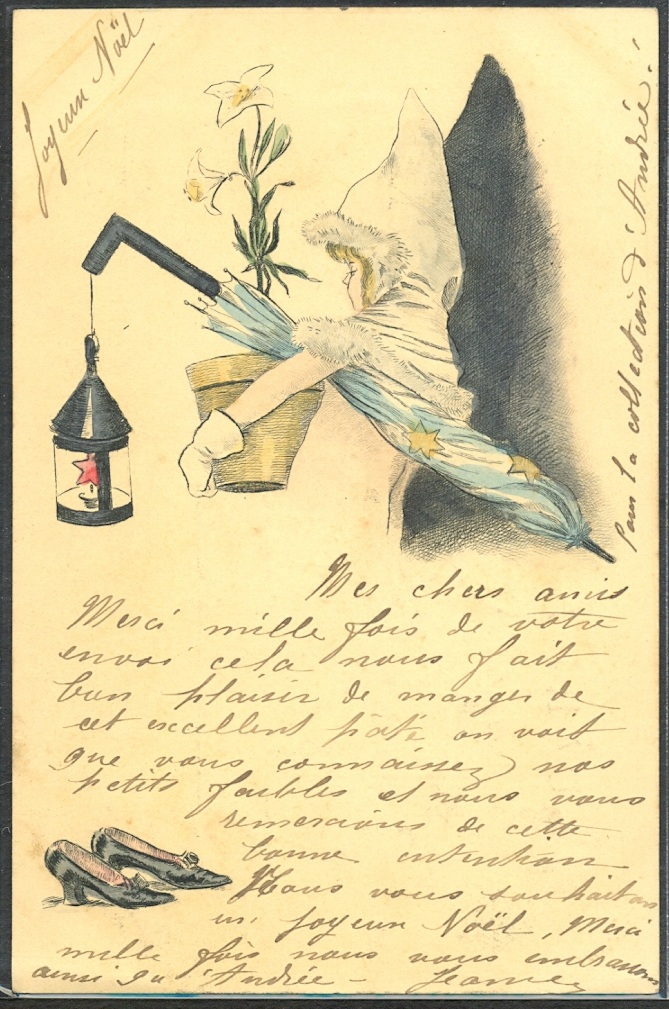 Joyeux Noël
Pour la collection d'Andrée !
Mes chers amis
Merci mille fois de votre
envoi cela nous fait
bon plaisir de manger de
cet excellent pâté on voit
que vous connaissez nos
petits faibles et nous vous
remercions de cette
bonne intention
Nous vous souhaitons
un joyeux Noël, Merci
mille fois nous vous embrassons
ainsi qu'Andrée - Jeanne